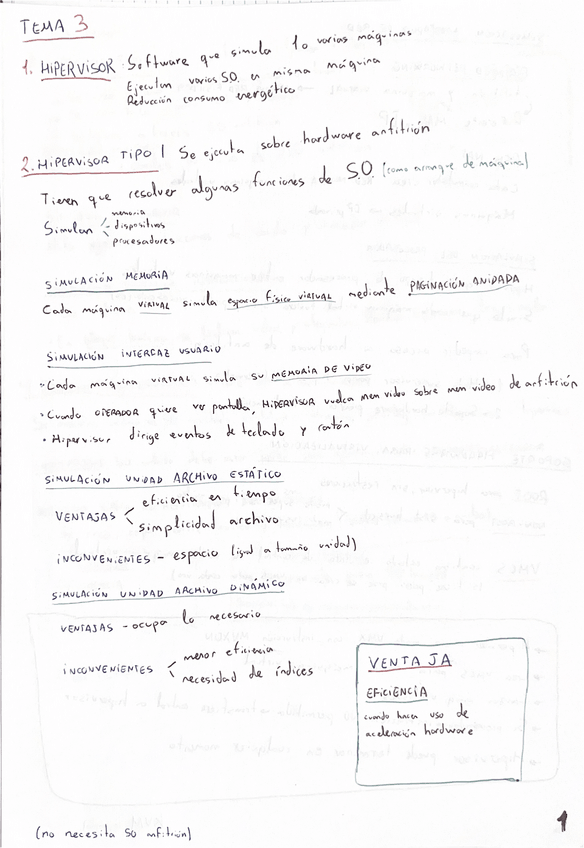 TEMA 3
1. HIPERVISOR · Software que simula 1 o varias máquinas
Ejecutan varios S.O. en misma máquina
Reducción consumo energético
2. HIPERVISOR TIPO 1 Se ejecuta sobre hardware anfitrión
Tienen que resolver algunas funciones de S.O. (como arranque de máquina)
Simulan - memoria
- dispositivos
- procesadores
SIMULACIÓN MEMORIA
Cada máquina VIRTUAL simula espacio físico VIRTUAL mediante PAGINACIÓN ANIDADA
SIMULACIÓN INTERFAZ USUARIO
· Cada máquina VIRTUAL simula su MEMORIA DE VIDEO
· Cuando OPERADOR quiere ver pantalla, HIPERVISOR vuelca mem video sobre mem video de anfitrión
· Hipervisor dirige eventos de teclado y ratón
SIMULACIÓN UNIDAD ARCHIVO ESTÁTICO
VENTAJAS < eficiencia en tiempo
simplicidad archivo
INCONVENIENTES - espacio (igual a tamaño unidad)
SIMULACIÓN UNIDAD ARCHIVO DINÁMICO
VENTAJAS - ocupa lo necesario
INCONVENIENTES < menor eficiencia
necesidad de índices
VENTAJA
EFICIENCIA
cuando hacen uso de
aceleración hardware
(no necesita SO anfitrión)
1